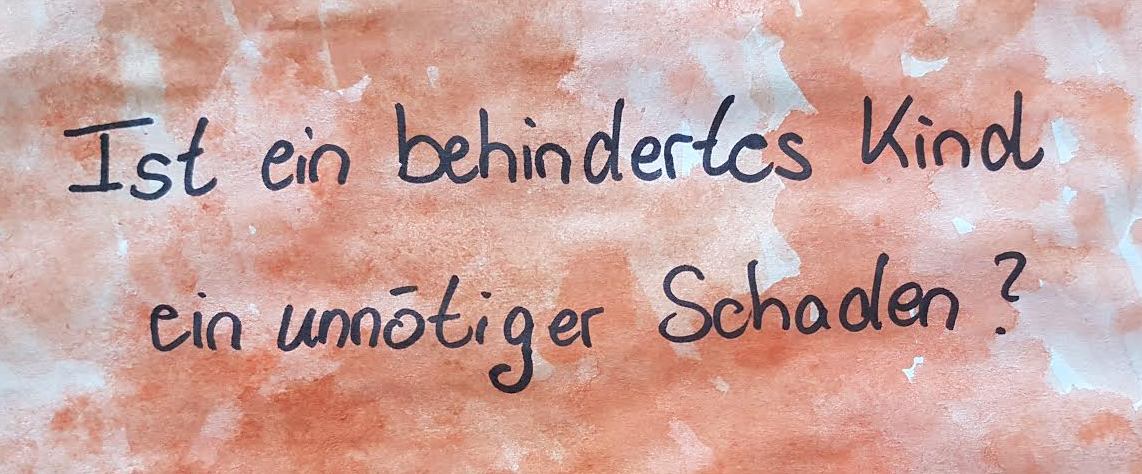 Ist ein behindertes Kind
ein unnötiger Schaden?